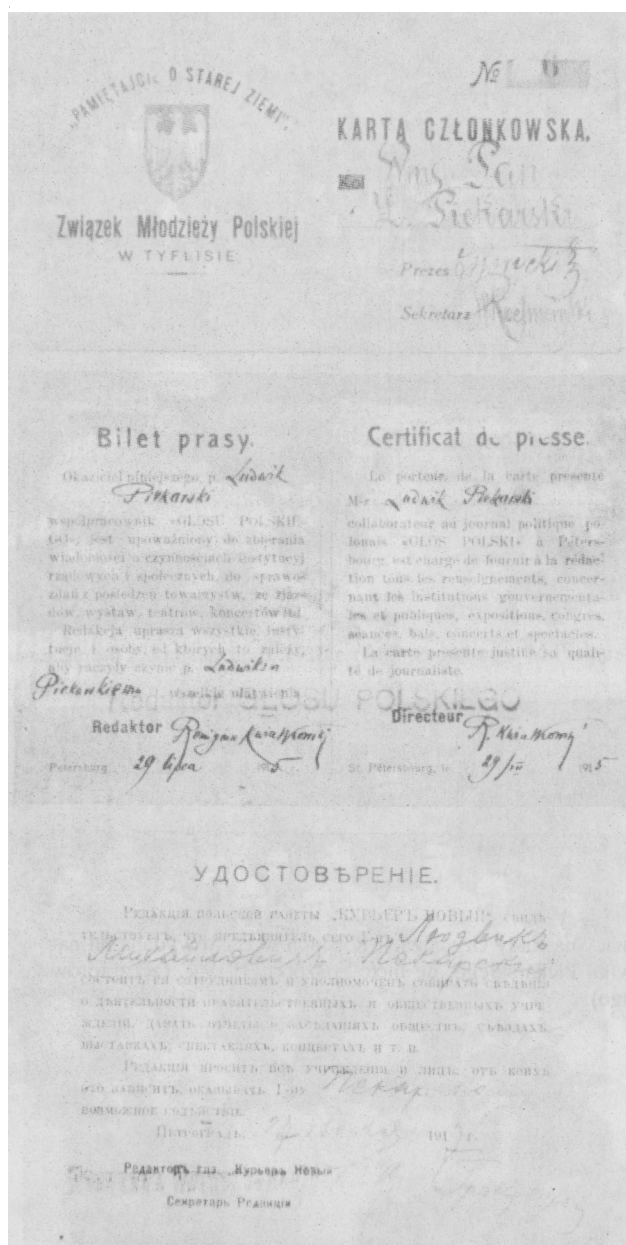 „PAMIĘTAJCIE O STAREJ ZIEMI".
Związek Młodzieży Polskiej
W TYFLISIE
№ 6
KARTA CZŁONKOWSKA.
Wny Pan
L. Piekarski
Prezes
Sekretarz
Bilet prasy.
Okaziciel niniejszego, p. Ludwik
Piekarski
współpracownik «GŁOSU POLSKIE-
GO», jest upoważniony do zbierania
wiadomości o czynnościach instytucyj
rządowych i społecznych, do sprawo-
zdań z posiedzeń towarzystw, ze zjaz-
dów, wystaw, teatrów, koncertów itd.
Redakcja uprasza wszystkie insty-
tucje i osoby, od których to zależy,
aby raczyły czynić p. Ludwikowi
Piekarskiemu wszelkie ułatwienia
Redaktor
Petersburg, 29 lipca 1915 r.
Certificat de presse.
Le porteur de la carte présente
M-r Ludwik Piekarski
collaborateur au journal politique po-
lonais «GŁOS POLSKI» à Péters-
bourg, est chargé de fournir à la rédac-
tion tous les renseignements, concer-
nant les institutions gouvernementa-
les et publiques, expositions, congrès,
séances, bals, concerts et spectacles.
La carte présente justifie sa quali-
té de journaliste.
Redaktor GŁOSU POLSKIEGO
Directeur R. Kwiatkowski
St. Pétersbourg, le 29/VII 1915
УДОСТОВѢРЕНІЕ.
Редакція польской газеты „КУРЬЕРЪ НОВЫЙ" свидѣ-
тельствуетъ, что предъявитель сего Г-нъ Людвикъ
Михайловичъ Пекарскій
состоитъ ея сотрудникомъ и уполномоченъ собирать свѣдѣнія
о дѣятельности правительственныхъ и общественныхъ учре-
жденій, давать отчеты о засѣданіяхъ обществъ, съѣздахъ
выставкахъ, спектакляхъ, концертахъ и т. п.
Редакція проситъ всѣ учрежденія и лица, отъ коихъ
это зависитъ, оказывать Г-ну Пекарскому
возможное содѣйствіе.
Петроградъ, 191 г.
Редакторъ газ. „Курьеръ Новый"
Секретарь Редакціи